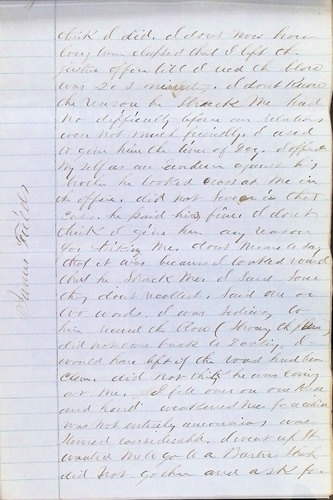 think I did. I dont now how
long time elapsed that I left the
justice office till I recd the blow
was 20 minutes. I dont know
the reason he Struck me had
no difficulty before our relations
were not much friendly. I used
to give him the time of day. I offered
myself as an evidence against his
brother he looked cross at me in
the office. did not swear in that
case. he paid his fine. I dont
think I give him any reason
for striking me. dont mean to say
that it was because I looked round
that he Struck me. I said some
thing dont recollect. Said one or
two words. I was
him recd the blow (
did not come back to I
would have left if the road had been
clear. did not think he was coming
at me. I fell over on one knee
and hand. weakened me for a
was not entirely unconscious was
stunned considerable. I went up St
wanted me to go to a Barber Shop
did not go her and ask for
James Fields